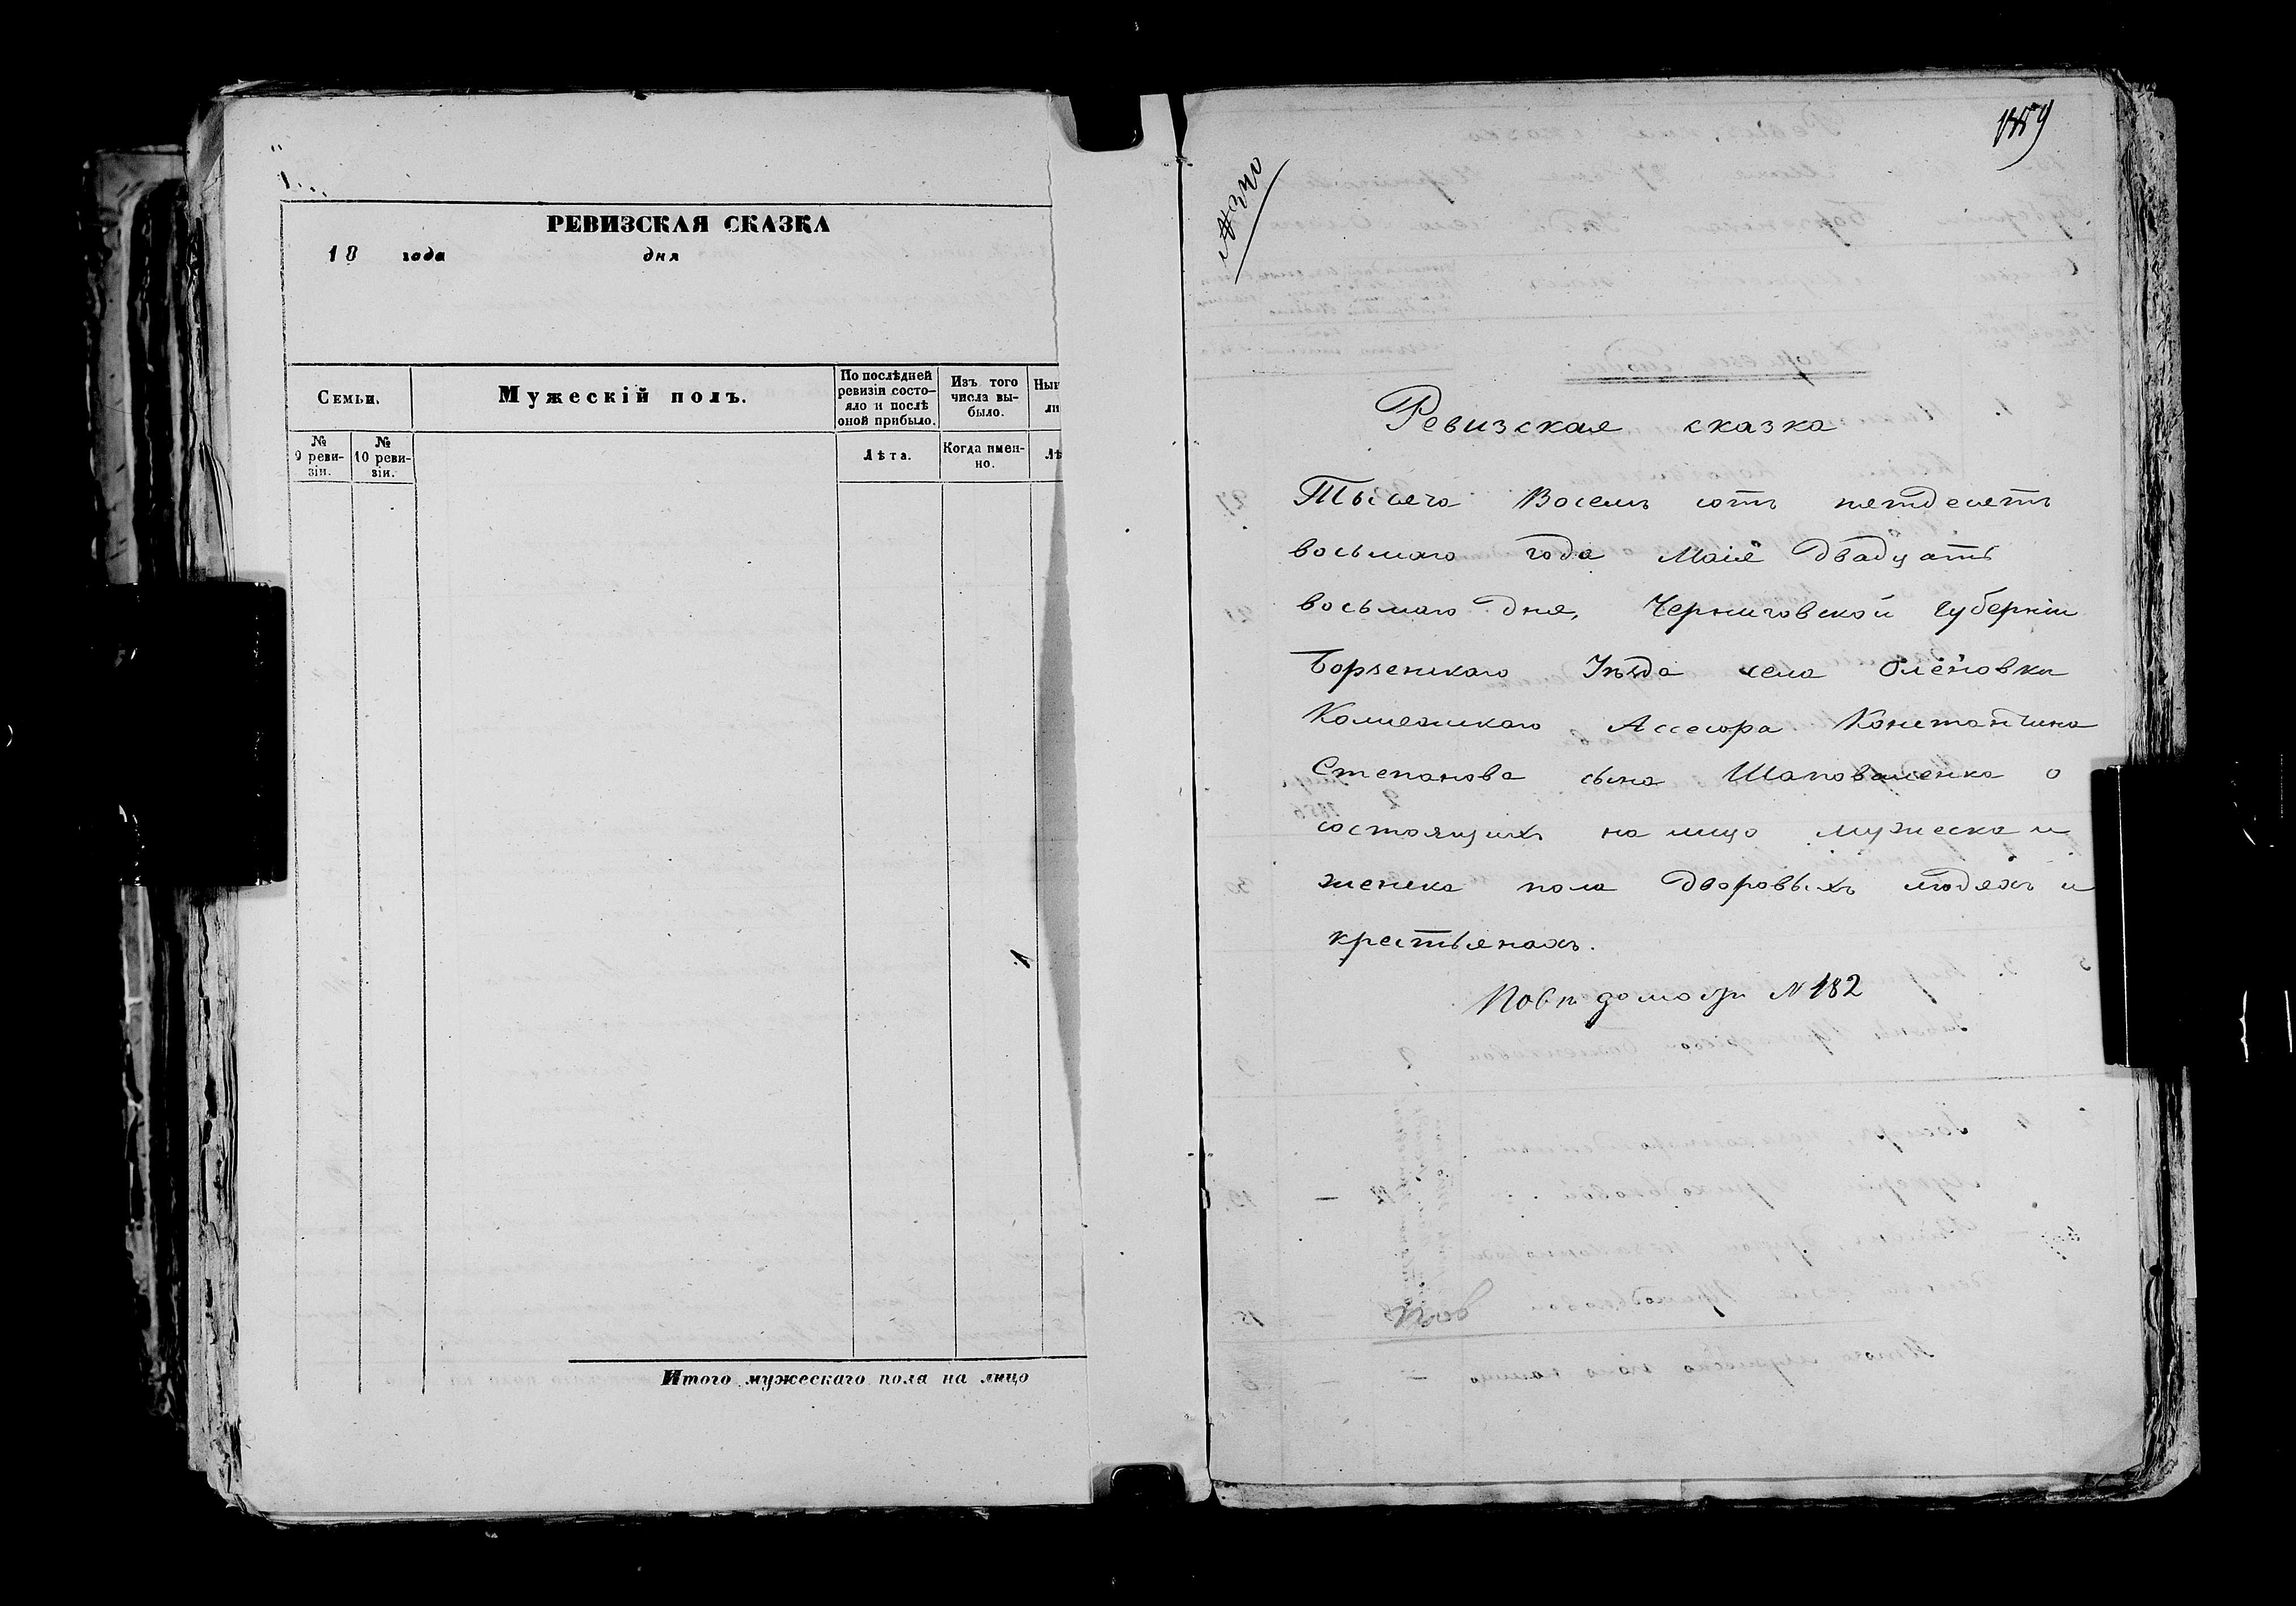 РЕВИЗСКАЯ СКАЗКА
18 года дня
Семьи.
Мужескій полъ.
По послѣдней ревизіи состо-
яло и послѣ
оной прибыло.
Изъ того
числа вы-
было.
№
9 реви-
зіи.
№
10 реви-
зіи.
Лѣта.
Когда имен-
но.
Итого мужескаго пола на лицо
№ 340
Ревизская сказка
Тысяча Восемь сотъ пятдесятъ
восьмаго года Маія двадцать
восьмаго дня, Черниговской Губерніи
Борзенскаго Уѣзда села Оленовки
Колležскаго Ассесора Константина
Степанова сына Шаповаленка о
состоящихъ на лицо мужеска и
женска пола дворовыхъ людяхъ и
крестьянахъ.
По вѣдомости № 182